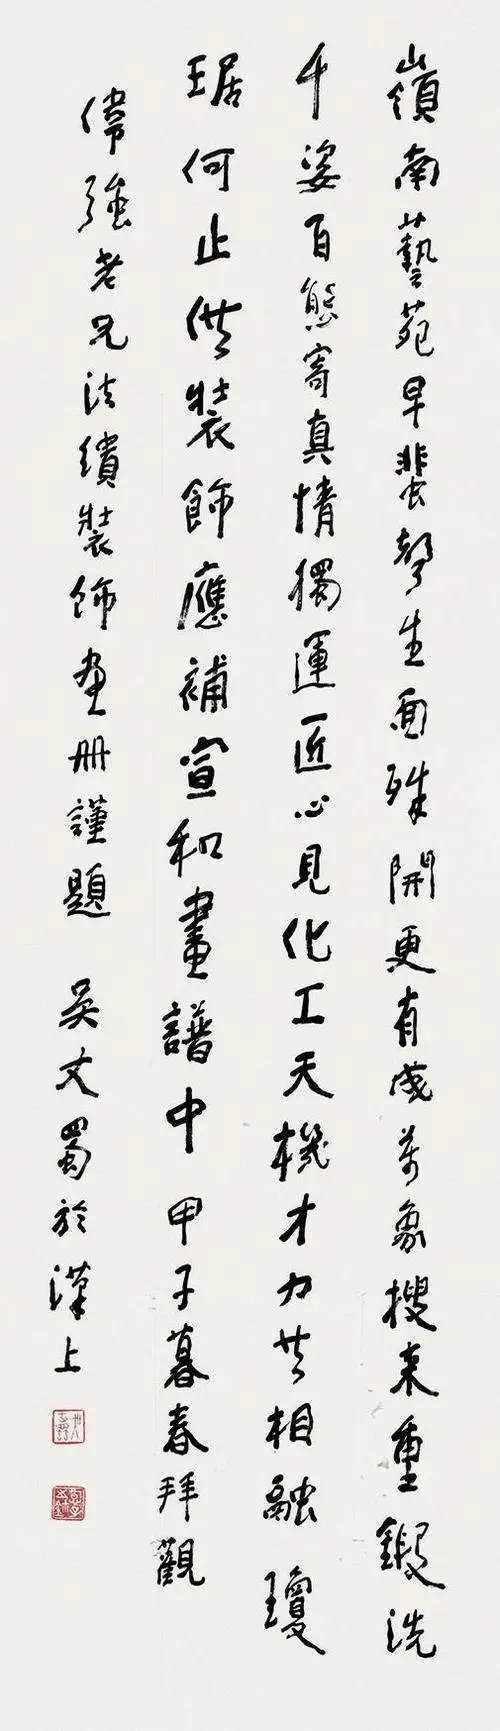 嶺南藝苑早蜚聲生面殊開更有成萬象搜来重鍛洗
千姿百態寄真情獨運匠心見化工天機才力共相融瓊
琚何止供裝飾應補宣和畫譜中 甲子暮春拜觀
偉強老兄法繢裝飾画册謹題 吳丈蜀於漢上